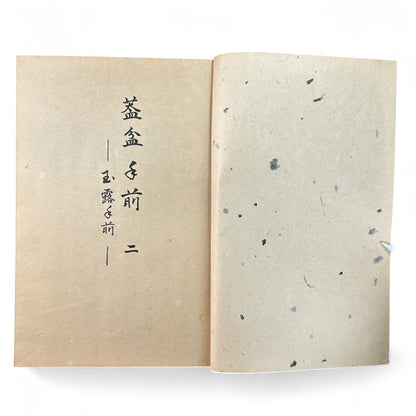 蓋盆手前 二
―玉露手前―